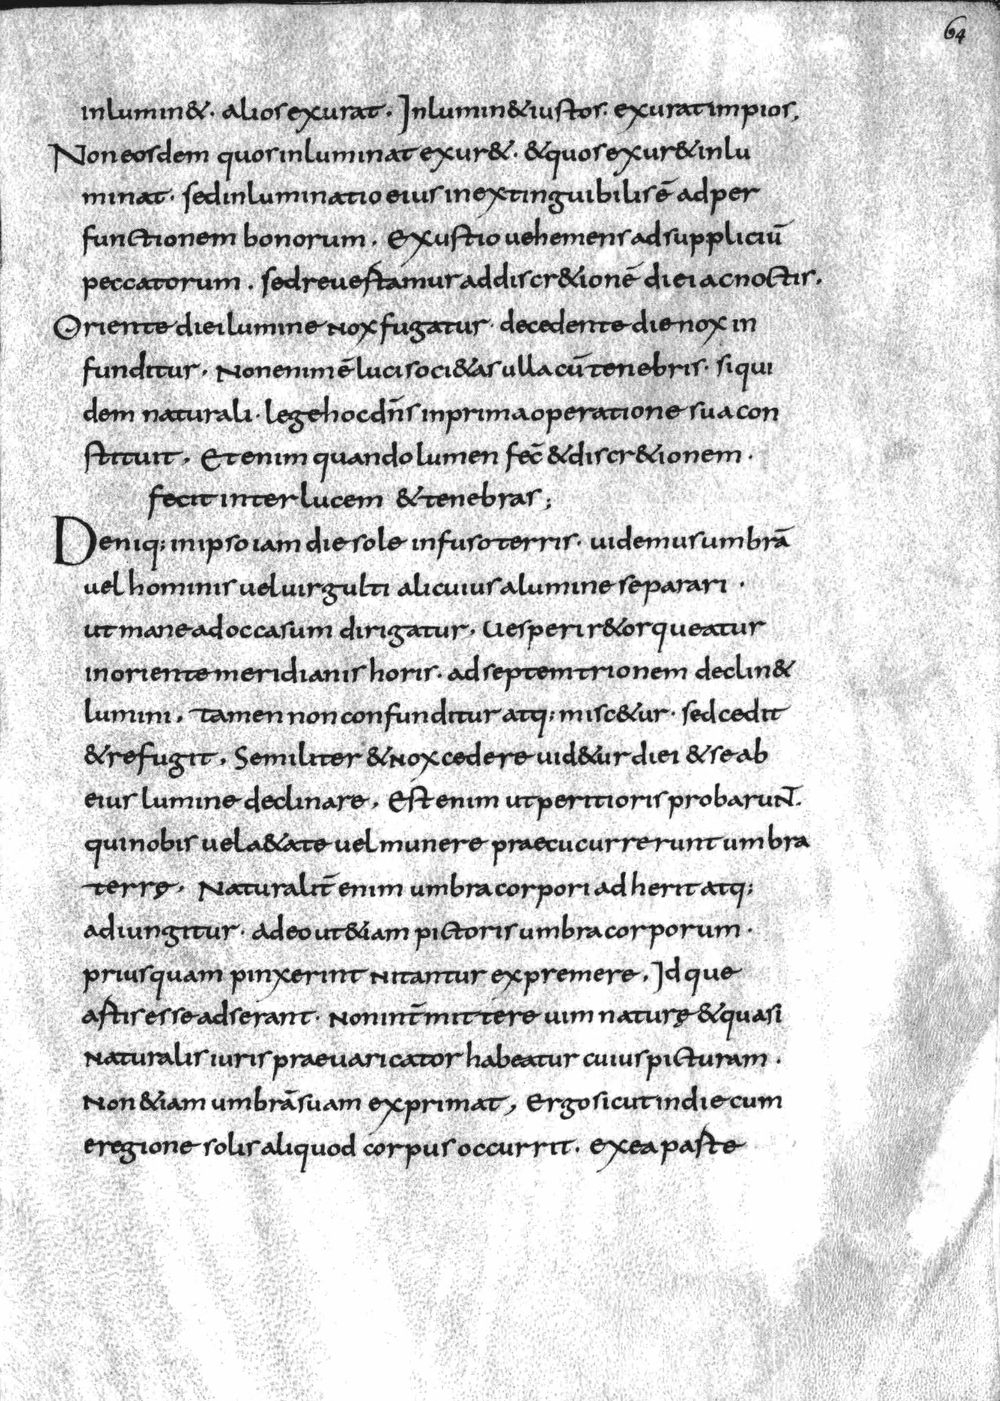 64
inlumin&· alios exurat· Inlumin& iustos· exurat impios,
Non eosdem quos inluminat exur&· & quos exur& inlu
minat· sed inluminatio eius inextinguibilis ē ad per
functionem bonorum. Exustio uehemens ad suppliciū
peccatorum. sed reuestamur ad discr&ionē diei ac noctis.
Oriente diei lumine nox fugatur· decedente die nox in
funditur. Non enim ē luci soci&as ulla cū tenebris· siqui
dem naturali· lege hoc dn̄s in prima operatione sua con
stituit. Et enim quando lumen fec̄ & discr&ionem·
fecit inter lucem & tenebras;
Deniq; in ipso iam die sole infuso terris· uidemus umbrā
uel hominis uel uirgulti alicuius a lumine separari·
ut mane ad occasum dirigatur. Uesperi r&orqueatur
in oriente meridianis horis· ad septemtrionem declin&
lumini. Tamen non confunditur atq; misc&ur· sed cedit
& refugit. Semiliter & nox cedere uid&ur diei & se ab
eius lumine declinare. Est enim ut peritioris probaruN̄.
qui nobis uel a&ate uel munere praecucurrerunt umbra
terrę. Naturalit̄ enim umbra corpori adherit atq;
adiungitur· Adeo ut &iam pictoris umbra corporum·
priusquam pinxerint nitantur expremere. Idque
astis esse adserant· non int̄mittere uim naturę & quasi
naturalis iuris praeuaricator habeatur cuius picturam·
Non &iam umbrā suam exprimat, Ergo sicut in die cum
e regione solis aliquod corpus occurrit· ex ea paste